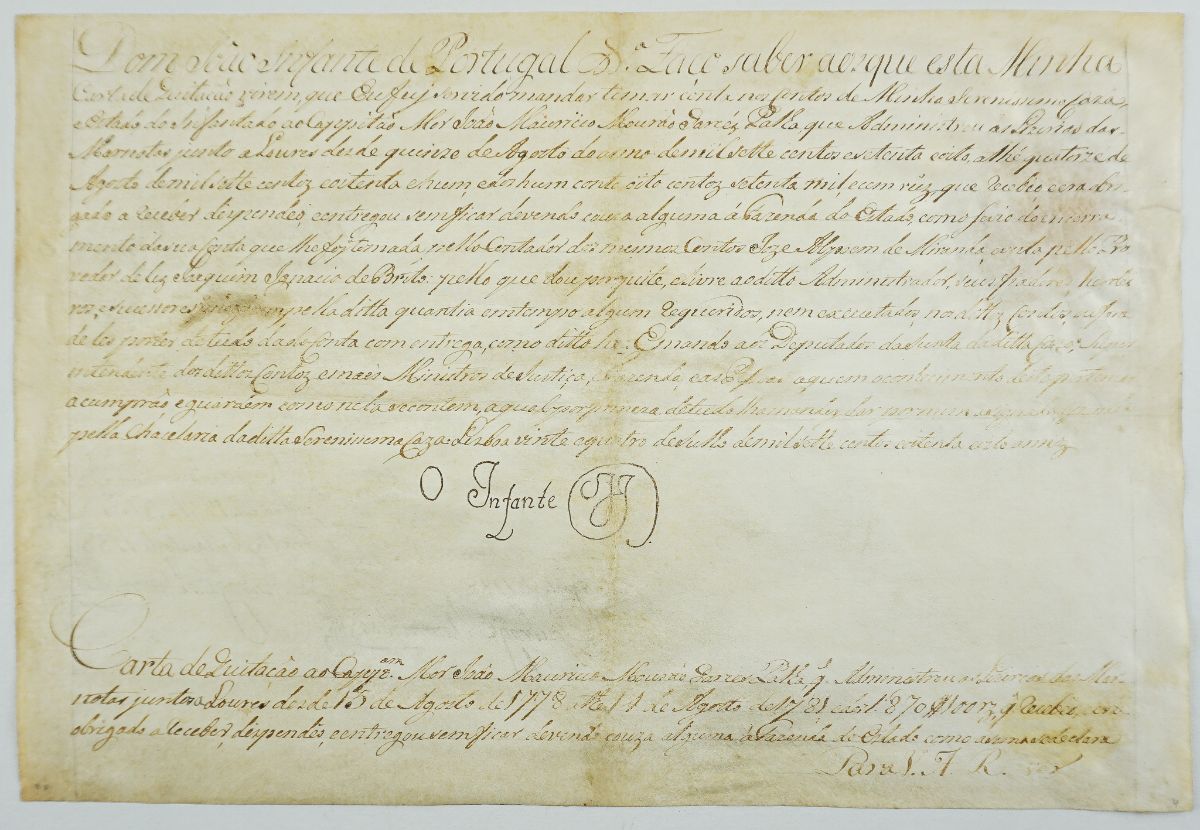 Dom João Infante de Portugal &.ª Faço saber aos que esta Minha
Carta de Quitação virem, que Eu fuy servido mandar tomar conta nos Contos de Minha Serenissima Caza,
e Estado do Infantado ao Cappitão Mor João Mauricio Mourão Garcez Palha que Administrou as Lizirias das
Marnotas junto a Loures desde quinze de Agosto do anno de mil sette centos e setenta e oito, athé quatorze de
Agosto de mil sette centos e oitenta e hum e são hum conto oito centos setenta mil e cem réiz que recebeo e era obri-
gado a receber dispendeo, e entregou sem ficar devendo couza alguma á Fazenda do Estado, como se vio do encerra-
mento da sua conta que lhe foy tomada pello Contador dos mesmos Contos Joze de Miranda, e vista pello Pro-
vedor delles Joaquim Ignacio de Brito: pello que dou por quite, e livre ao ditto Administrador, seus fiadores, herdei-
ros, e sucessores pella ditta quantia em tempo algum requeridos, nem executados, nos dittos Contos, nem fora
delles por ter de tudo dado conta com entrega, como ditto he: E mando aos Deputados da Junta da ditta Caza, Super-
intendente dos dittos Contos, e mais Ministros de Justiça, e Fazenda, e a quem o conhecimento desta pertencer
a cumprão e guardem como nella se contem, a qual por firmeza de tudo lhe mandei dar por mim asignada
pella Chacelaria da ditta Serenissima Caza. Lisboa vinte e quatro de Julho de mil sette centos e oitenta e oito annos
O Infante
Carta de Quitação ao Capp.am Mor João Mauricio Mourão Garcez Palha q Administrou as Lizirias das Mar-
notas junto a Loures desde 15 de Agosto de 1778 athe 14 de Agosto de 1781 e são 1:870$100 rz q Recebeo, e era
obrigado a receber, dispendeo, e entregou sem ficar devendo couza alguma a Fazenda do Estado como asima se declara
Para V. A. R. ver